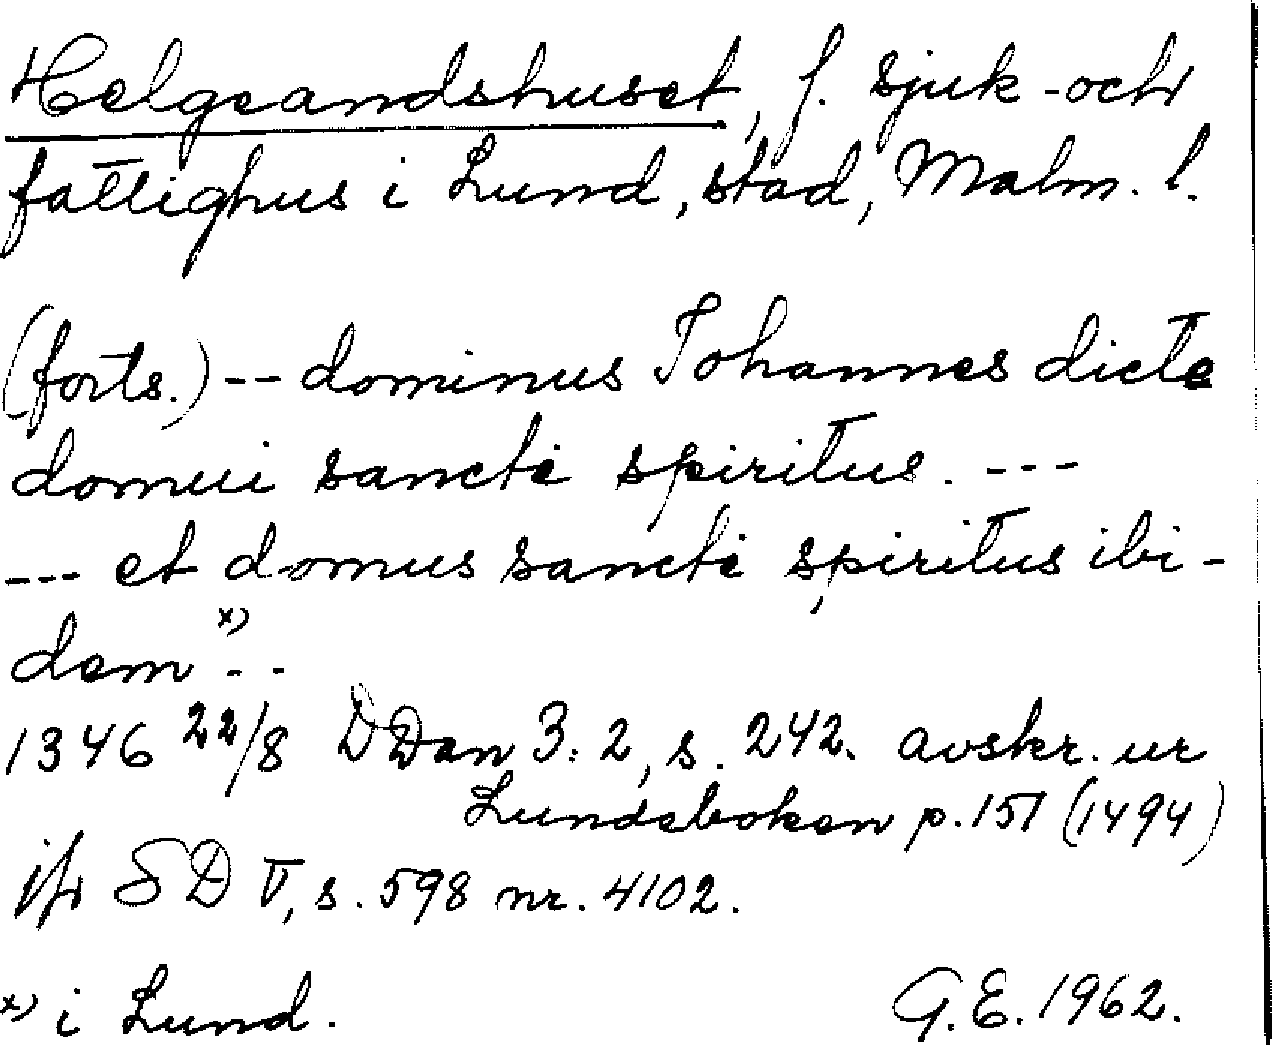 Helgeandshuset, f. sjuk- och
fattighus i Lund, stad, Malm. l.
(forts.) -- dominus Johannes dicte
domui sancti spiritus. ---
--- et domus sancti spiritus ibi-
dem x) --
1346 22/8 DDan 3:2, s. 242. avskr. ur
Lundeboken p. 151 (1494)
jfr SD V, s. 598 nr. 4102.
x) i Lund. G.E. 1962.